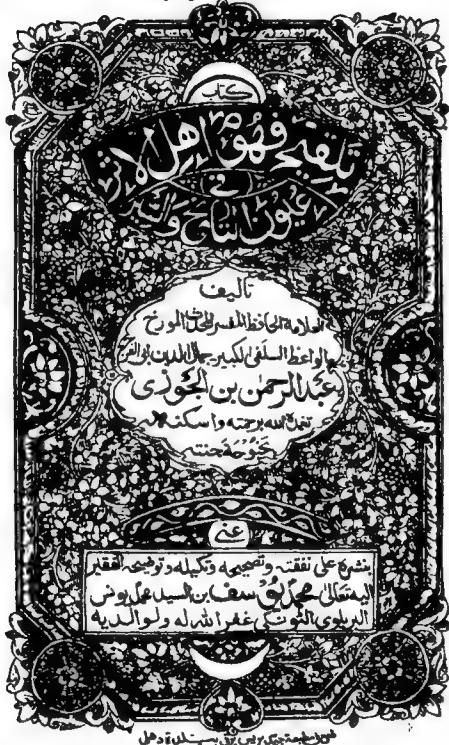 كتاب
تلقيح فهوم اهل الاثر
في
عيون التاريخ والسير
تاليف
العلامة الحافظ المفسر المحدث المورخ
الواعظ السلفي الكبير جمال الدين ابو الفرج
عبد الرحمن بن الجوزى
تغمده الله برحمته واسكنه
بحبوحة جنته
عنى
بنشره على نفقته وتصحيحه وتكميله وتوضيحه الفقير
اليه تعالى محمد يوسف بن السيد محمد يونس
البريلوى الثونكى غفر الله له ولوالديه